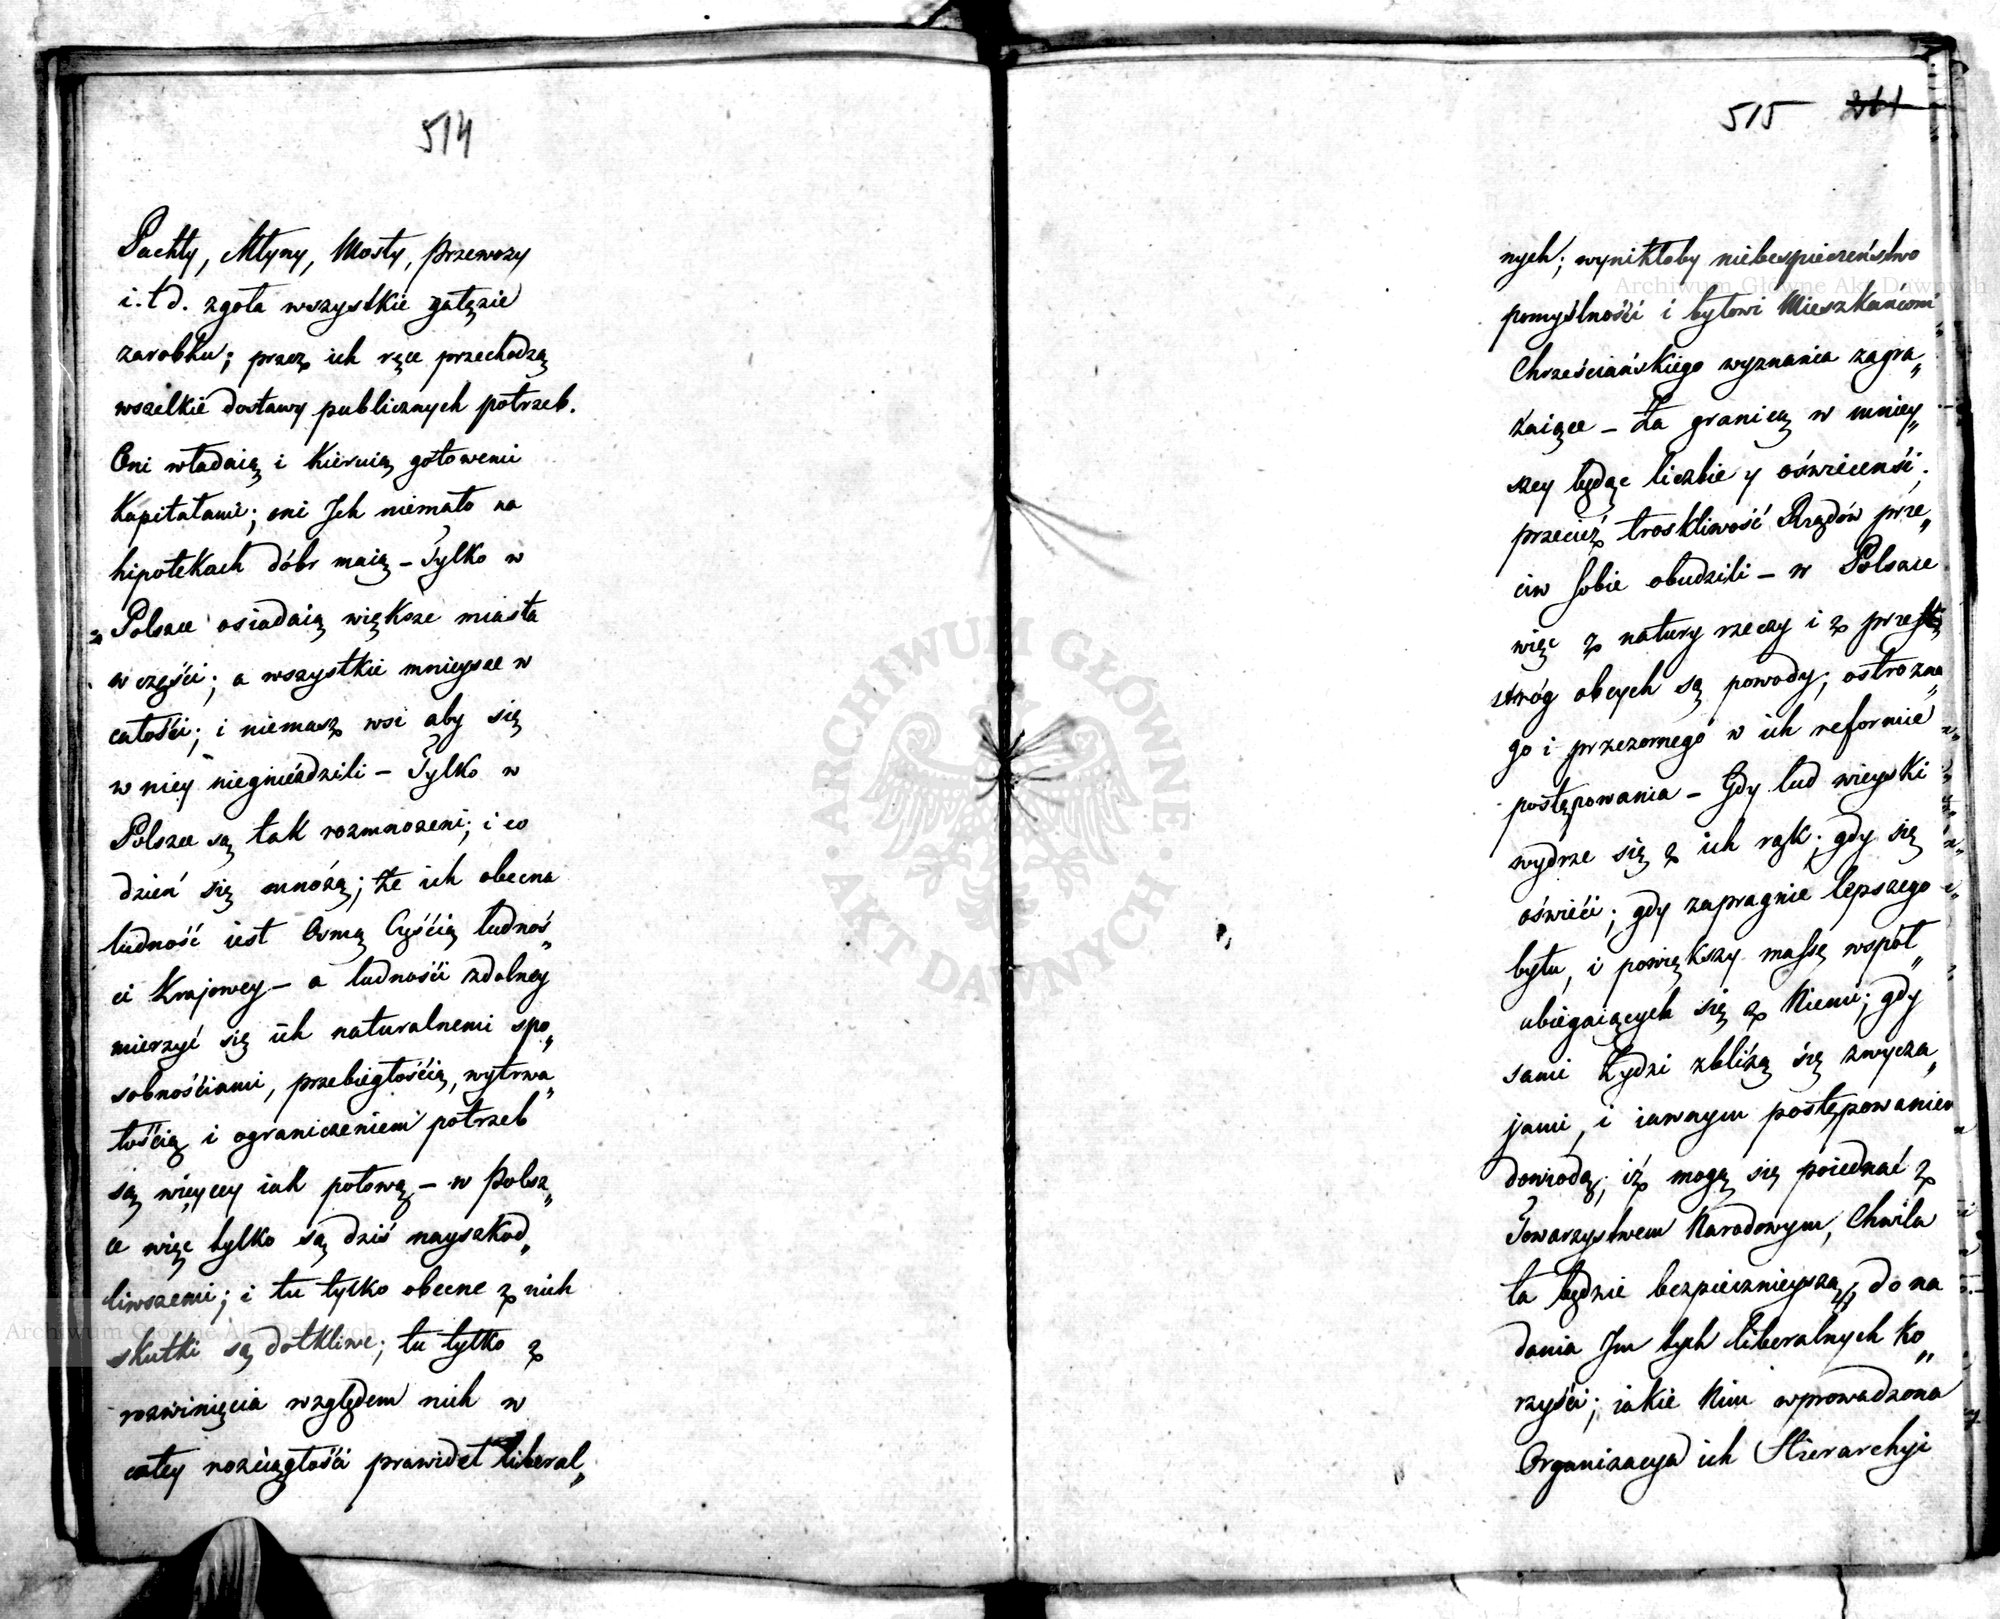 514
Pachty, Młyny, Mosty, przewozy
i.t.d. zgoła wszystkie gałęzie
zarobku; przez ich ręce przechodzą
wszelkie dostawy publicznych potrzeb.
Oni władaią i kieruią gotowemi
kapitałami; oni Jch niemało na
hipotekach dóbr maią – Tylko w
Polsce osiadaią większe miasta
w części; a wszystkie mnieysze w
całości; i niemasz wsi aby się
w niey niegnieździli – Tylko w
Polsce są tak rozmnożeni; i co
dzień się mnożą; że ich obecna
ludność iest Osmą Częścią ludnoś„
ci Krajowey – a ludności zdolney
mierzyć się ich naturalnemi spo„
sobnościami, przebiegłością, wytrwa„
łością i ograniczeniem potrzeb
są więcey iak połową – w Polsz„
ce więc tylko są dziś nayszkod„
liwszemi; i tu tylko obecne z nich
skutki są dotkliwe; tu tylko z
rozwinięcia względem nich w
całey rozciągłości prawideł liberal„
515 261
nych; wynikłoby niebespieczeństwo
pomyślności i bytowi Mieszkańcom
Chrześciańskiego wyznania zagra„
żaiące – Za granicą w mniey„
szey będąc liczbie y oświeceńsi;
przecież troskliwość Rządów prze„
ciw sobie obudzili – w Polsce
więc z natury rzeczy i z prze
stróg obcych są powody; ostrożne„
go i przezornego w ich reformie
postępowania – Gdy lud wieyski
wydrze się z ich rąk; gdy się
oświeci; gdy zapragnie lepszego
bytu, i powiększy massę współ„
ubiegaiących się z Niemi; gdy
sami Żydzi zbliżą się zwycza„
jami, i iawnym postępowaniem
dowiodą; iż mogą się poiednać z
Towarzystwem Narodowym, Chwila
ta będzie bezpiecznieyszą, do na
dania Jm tych liberalnych ko„
rzyści; iakie Nim wprowadzona
Organizacya ich Hierarchyi
ARCHIWUM GŁÓWNE
AKT DAWNYCH
Archiwum Główne Akt Dawnych
Archiwum Główne Akt Dawnych